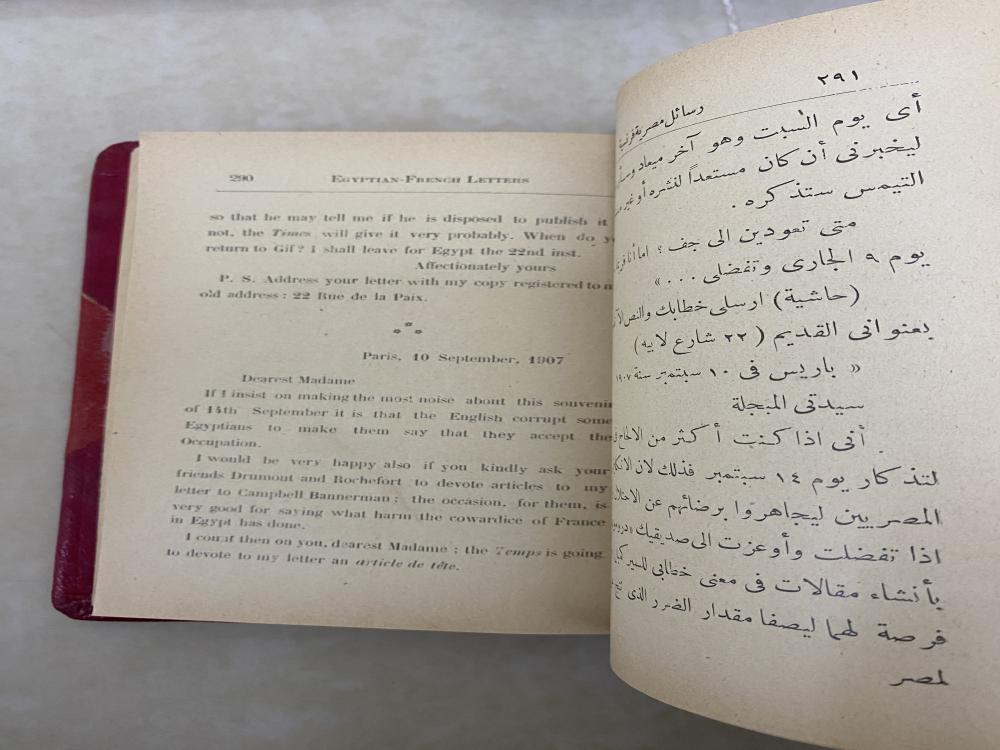 290 EGYPTIAN-FRENCH LETTERS
so that he may tell me if he is disposed to publish it
not, the Times will give it very probably. When do
return to Gif? I shall leave for Egypt the 22nd inst.
Affectionately yours
P. S. Address your letter with my copy registered to
old address: 22 Rue de la Paix.
***
Paris, 10 September, 1907
Dearest Madame
If I insist on making the most noise about this souvenir
of 14th September it is that the English corrupt some
Egyptians to make them say that they accept the
Occupation.
I would be very happy also if you kindly ask your
friends Drumont and Rochefort to devote articles to my
letter to Campbell Bannerman: the occasion, for them, is
very good for saying what harm the cowardice of France
in Egypt has done.
I count then on you, dearest Madame; the Temps is going
to devote to my letter an article de tête.
٢٩١
رسائل مصرية
أى يوم السبت وهو آخر ميعاد
ليخبرنى أن كان مستعداً لنشره أو غير
التيمس ستذكره .
متى تعودين الى جف ؟ اما أنا
يوم ٩ الجارى وتفضلى . . . »
(حاشية) ارسلى خطابك والنص
بعنوانى القديم (٢٢ شارع لابيه)
« باريس فى ١٠ سبتمبر سنة ١٩٠٧
سيدتى المبجلة
أنى اذا كنت أكثر من الالحاح
لتذكار يوم ١٤ سبتمبر فذلك لان
المصريين ليجاهروا برضائهم عن
اذا تفضلت وأوعزت الى صديقيك
بأنشاء مقالات فى معنى خطابى للسير
فرصة لهما ليصفا مقدار الضرر الذى
لمصر